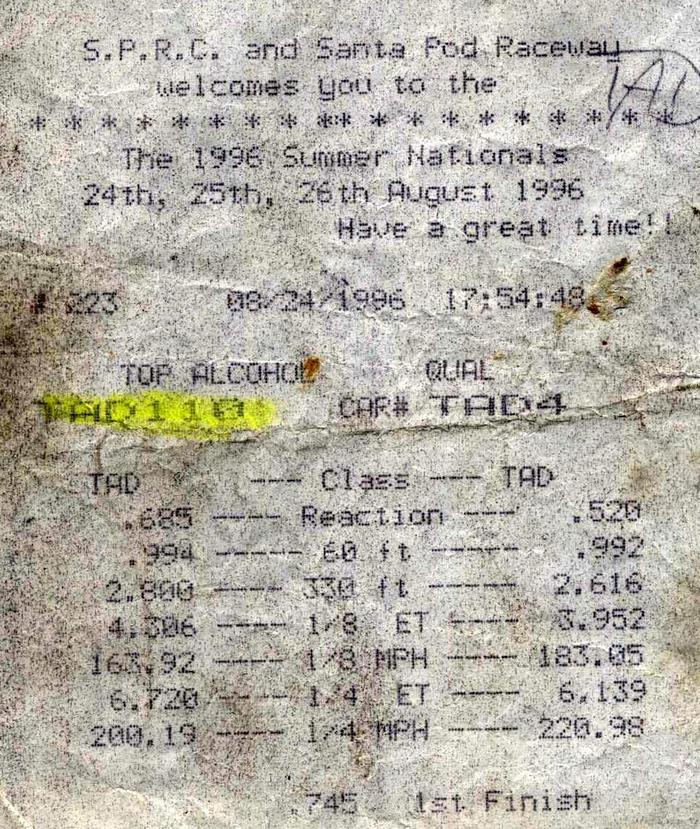 S.P.R.C. and Santa Pod Raceway
welcomes you to the
TAD
* * * * * * * * * ** * * * * * * * * *
The 1996 Summer Nationals
24th, 25th, 26th August 1996
Have a great time!!
# 223 08/24/1996 17:54:48
TOP ALCOHOL QUAL
TAD110 CAR# TAD4
TAD --- Class --- TAD
.685 ---- Reaction --- .520
.994 ----- 60 ft ----- .992
2.800 ---- 330 ft ----- 2.616
4.306 ---- 1/8 ET ---- 3.952
163.92 ---- 1/8 MPH ---- 183.05
6.720 ---- 1/4 ET ---- 6.139
200.19 ---- 1/4 MPH ---- 220.98
.745 1st Finish